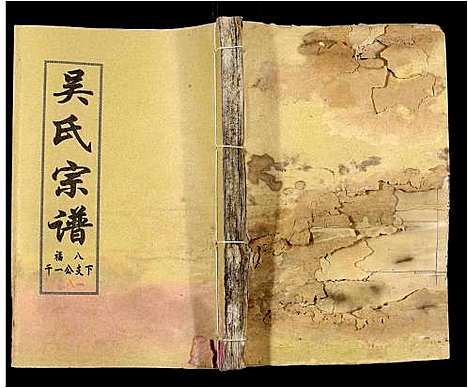 吴氏宗谱
福八
千一公支下